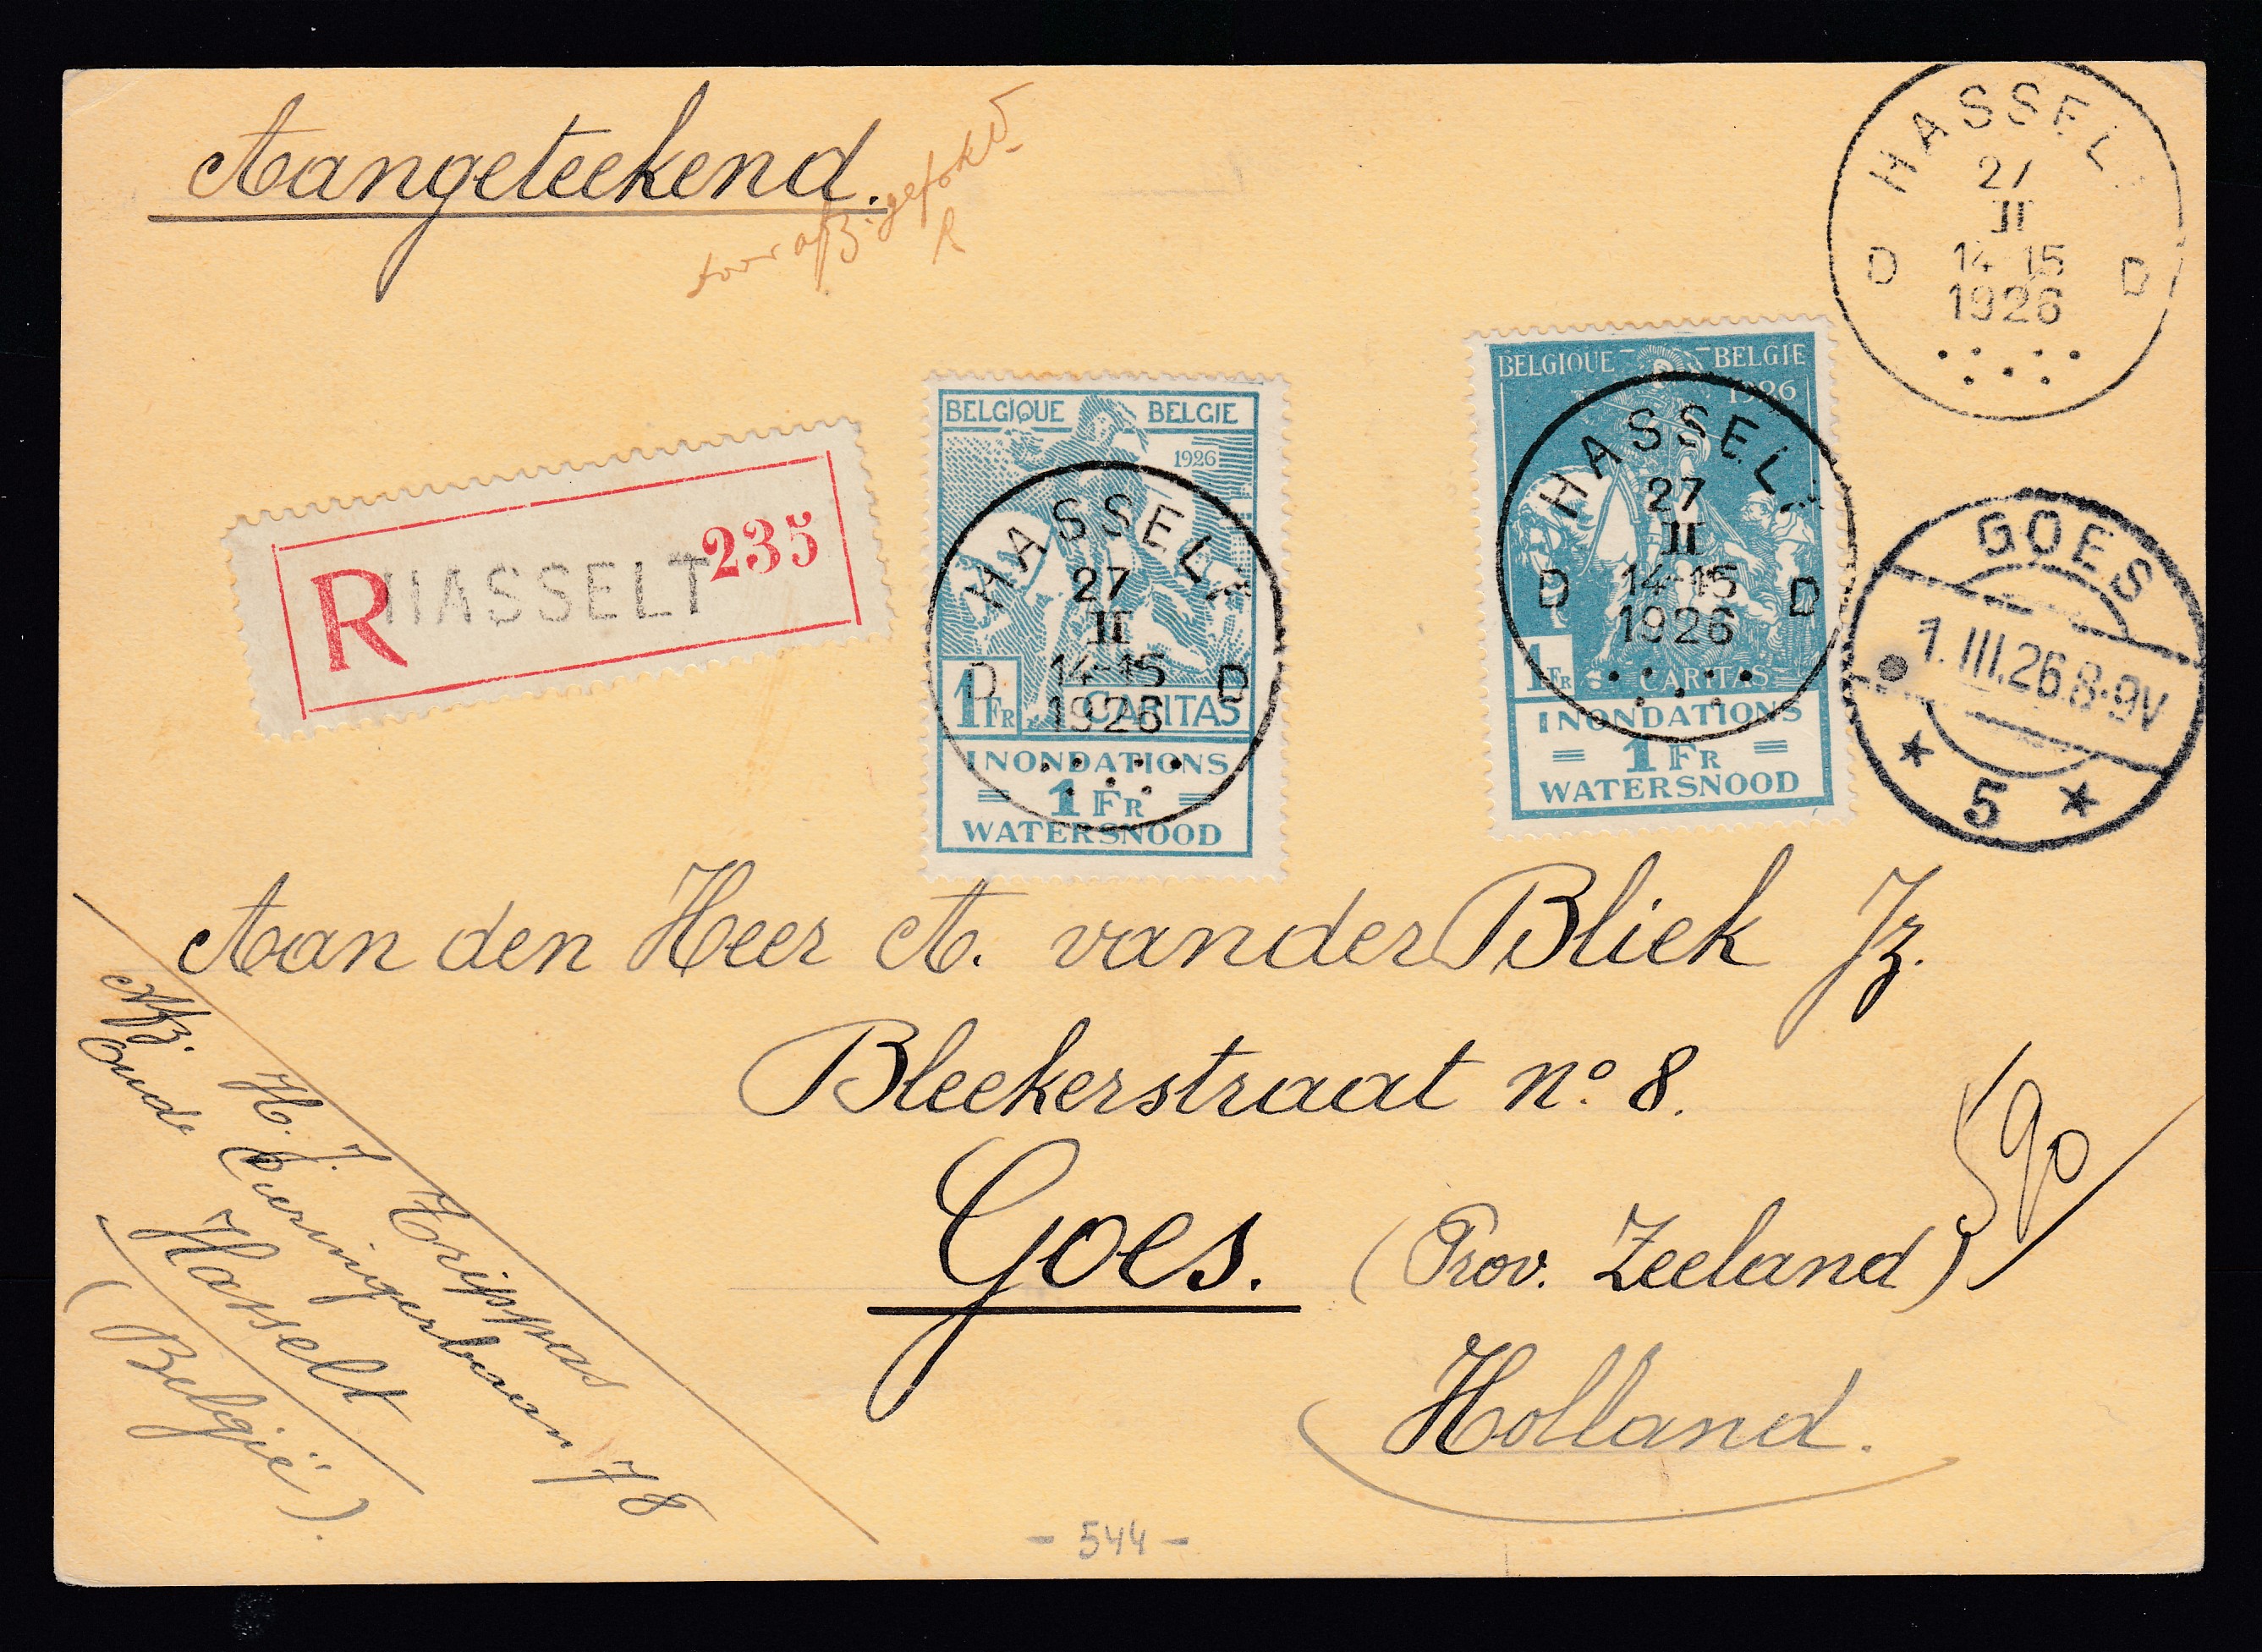 Aangeteekend.
door afz. gefokt
R
HASSELT
27
II
14-15
1926
D D
R HASSELT 235
BELGIQUE BELGIE
1926
1 FR CARITAS
INONDATIONS
= 1 FR =
WATERSNOOD
HASSELT
27
II
14-15
1926
D D
BELGIQUE BELGIE
1926
1 FR CARITAS
INONDATIONS
= 1 FR =
WATERSNOOD
HASSELT
27
II
14-15
1926
D D
GOES
1.III.26.8-9V
* 5 *
Aan den Heer A. van der Bliek Jz.
Bleekerstraat no. 8.
Goes. (Prov. Zeeland)
Holland.
590
Afz. H. J. Trippas
Oude Cueringerbaan 78
Hasselt
(België).
- 544 -